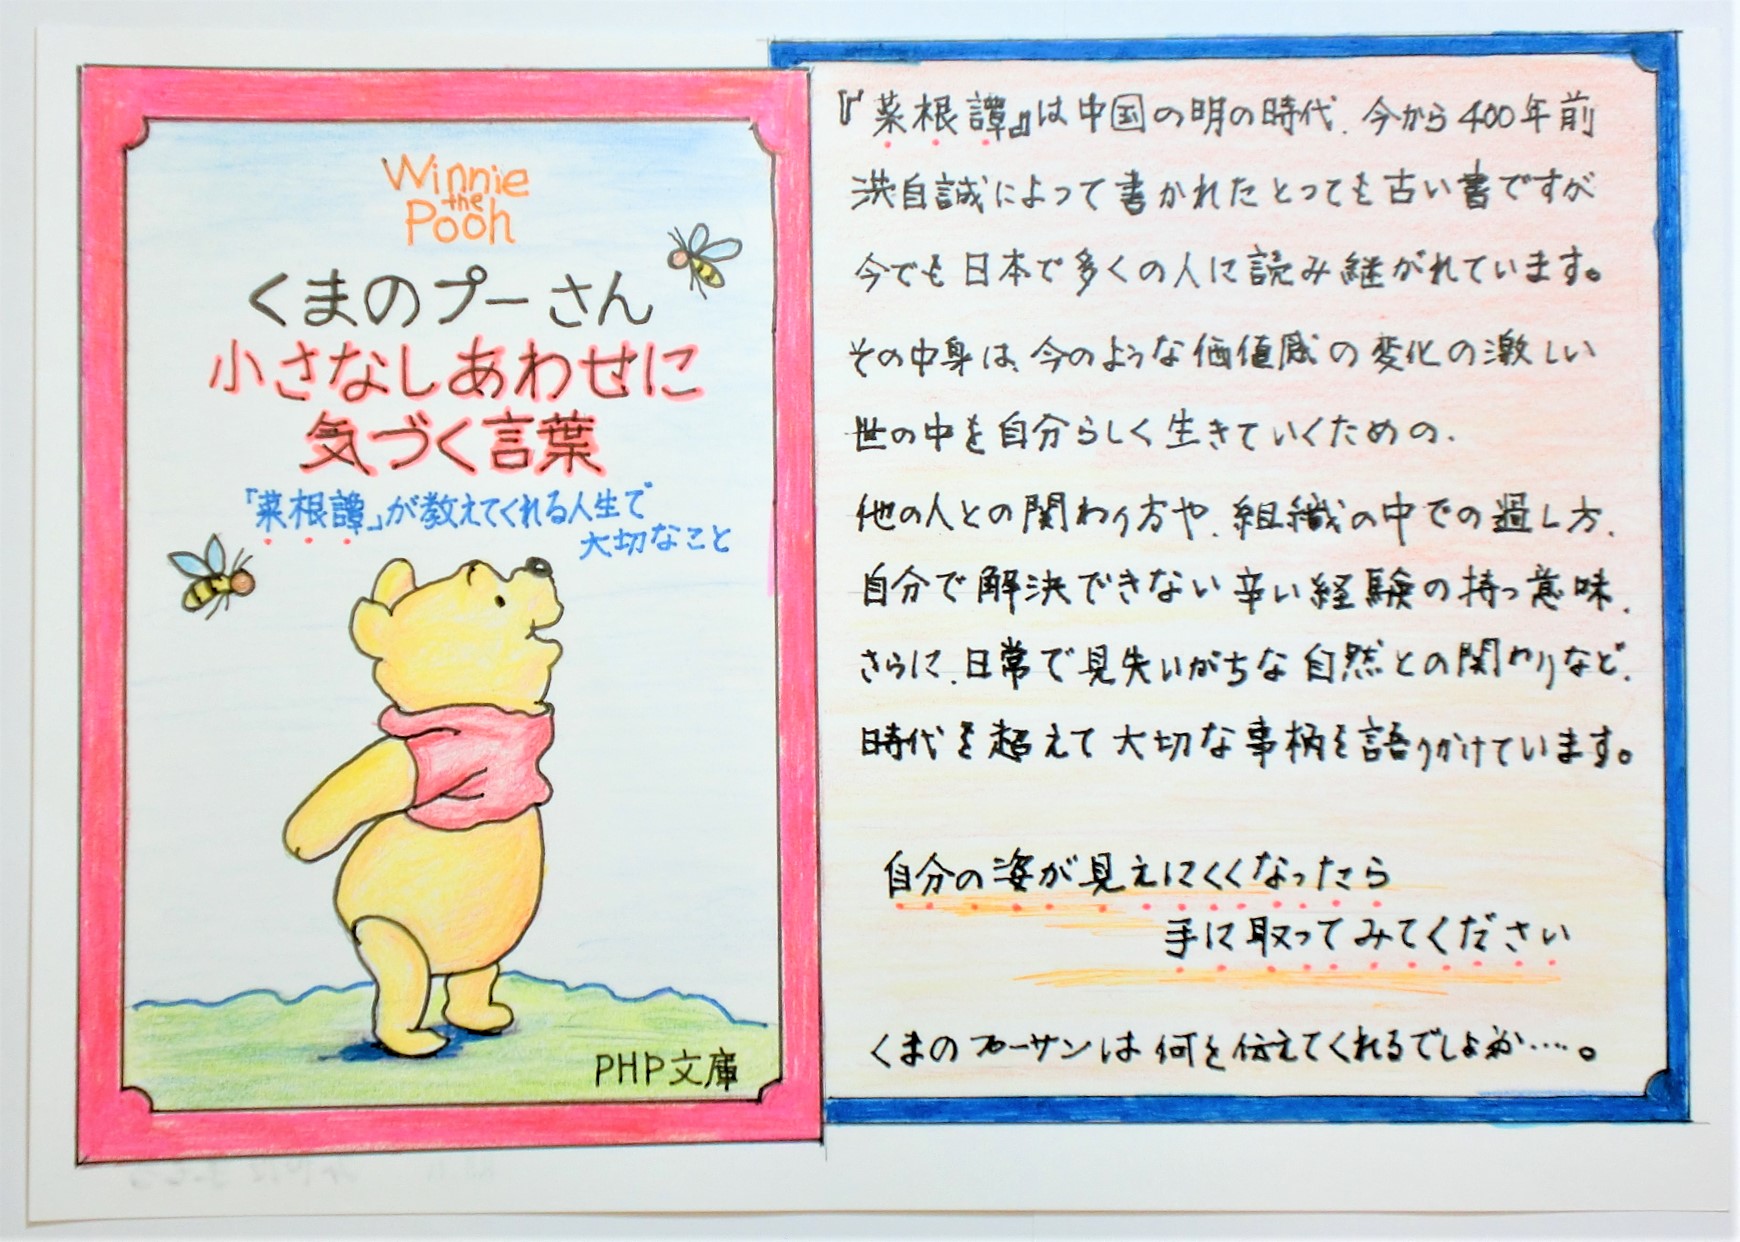 Winnie
the
Pooh
くまのプーさん
小さなしあわせに
気づく言葉
「菜根譚」が教えてくれる人生で
大切なこと
PHP文庫
『菜根譚』は中国の明の時代、今から400年前
洪自誠によって書かれたとっても古い書ですが
今でも日本で多くの人に読み継がれています。
その中身は、今のような価値感の変化の激しい
世の中を自分らしく生きていくための、
他の人との関わり方や、組織の中での過し方、
自分で解決できない辛い経験の持つ意味、
さらに、日常で見失いがちな自然との関わりなど、
時代を超えて大切な事柄を語りかけています。
自分の姿が見えにくくなったら
手に取ってみてください
くまのプーサンは何を伝えてくれるでしょか……。